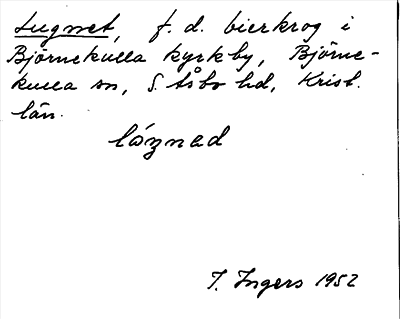 Lugnet, f. d. bierkrog i
Björnekulla kyrkby, Björne-
kulla sn, S. Åsbo hd, Krist.
län.
lóznad
I. Ingers 1952